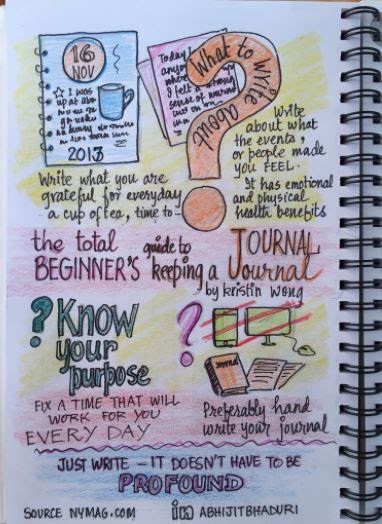 16
NOV
I was
up at
2013
Today
What to Write About
?
Write what you are
grateful for everyday
a cup of tea, time to-
Write
about what
the events,
or people made
you FEEL.
It has emotional
and physical
health benefits
the total
BEGINNER'S
guide to
keeping a
JOURNAL
Journal
by kristin wong
? Know
your
purpose
FIX A TIME THAT WILL
WORK FOR YOU
EVERY DAY
?
JOURNAL
Preferably hand
write your journal
JUST WRITE – IT DOESN'T HAVE TO BE
PROFOUND
SOURCE NYMAG.COM
in ABHIJITBHADURI